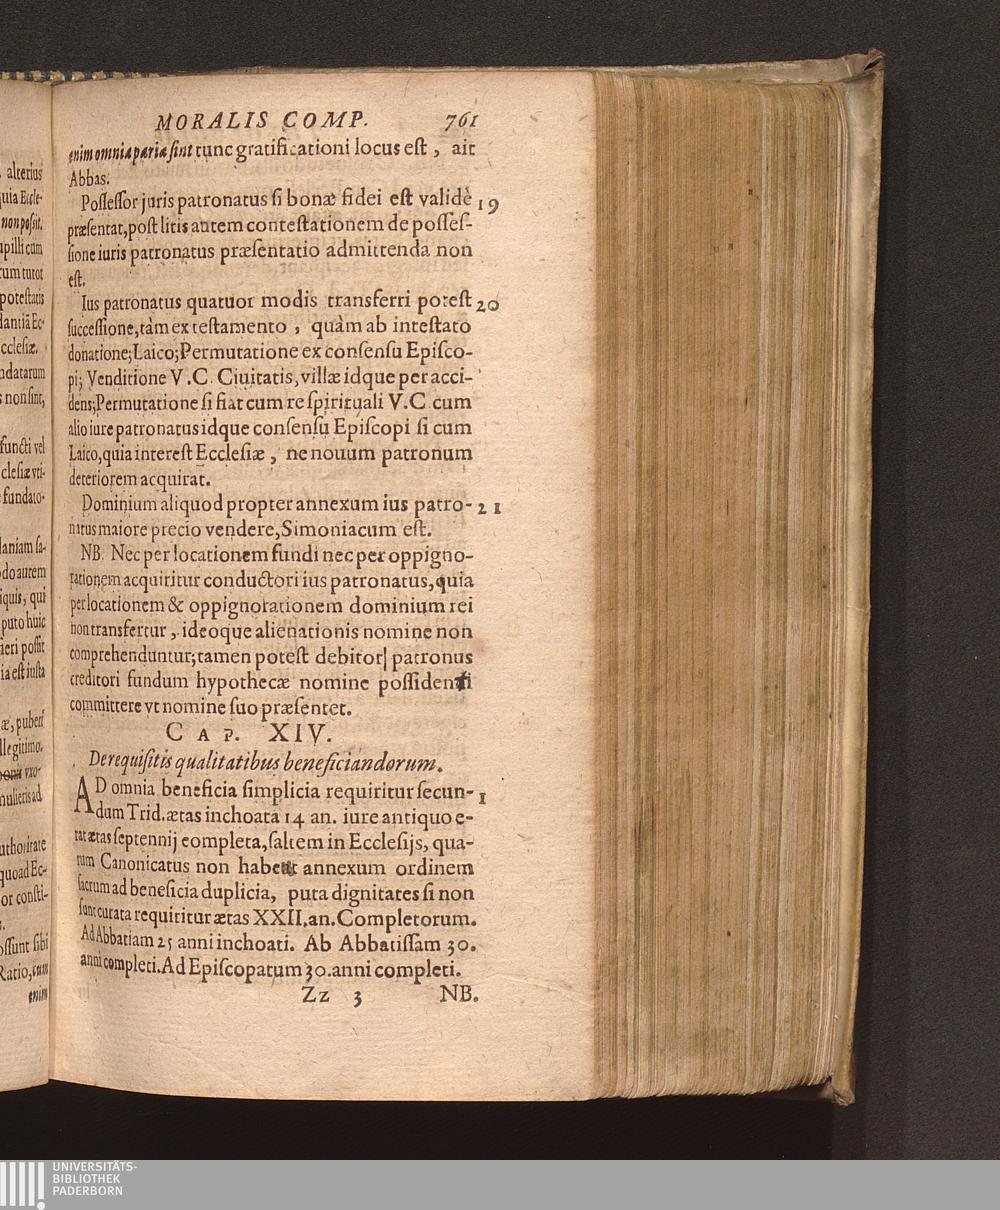 alterius
quia Eccle-
non possit.
pupilli cum
rum tutor
potestatis
dantiā Ec-
cclesiæ.
ndatarum
s non sint,
functi vel
clesiæ vti-
fundato-
laniam fa-
do autem
iquis, qui
puto huic
ieri possit
ia est iusta
æ, pubert
llegitimo.
bonis vxo-
mulieris ad
uthoritate
quoad Ec-
or consti-
ossunt sibi
Ratio, cum
enim
MORALIS COMP. 761
enim omnia paria sint tunc gratificationi locus est, ait
Abbas.
Possessor juris patronatus si bonæ fidei est validè 19
præsentat, post litis autem contestationem de posses-
sione iuris patronatus præsentatio admittenda non
est.
Ius patronatus quatuor modis transferri potest 20
successione, tàm ex testamento, quàm ab intestato
donatione; Laico; Permutatione ex consensu Episco-
pi; Venditione V.C. Ciuitatis, villæ idque per acci-
dens; Permutatione si fiat cum re spirituali V.C. cum
alio iure patronatus idque consensu Episcopi si cum
Laico, quia interest Ecclesiæ, ne nouum patronum
deteriorem acquirat.
Dominium aliquod propter annexum ius patro- 21
natus maiore precio vendere, Simoniacum est.
NB. Nec per locationem fundi nec per oppigno-
rationem acquiritur conductori ius patronatus, quia
per locationem & oppignorationem dominium rei
non transfertur, ideoque alienationis nomine non
comprehenduntur; tamen potest debitor patronus
creditori fundum hypothecæ nomine possidenti
committere vt nomine suo præsentet.
CAP. XIV.
De requisitis qualitatibus beneficiandorum.
AD omnia beneficia simplicia requiritur secun- 1
dum Trid. ætas inchoata 14 an. iure antiquo e-
rat ætas septennij completa, saltem in Ecclesijs, qua-
rum Canonicatus non habet annexum ordinem
sacrum ad beneficia duplicia, puta dignitates si non
sunt curata requiritur ætas XXII, an. Completorum.
Ad Abbatiam 25 anni inchoati. Ab Abbatissam 30.
anni completi. Ad Episcopatum 30. anni completi.
Zz 3 NB.
UNIVERSITÄTS-
BIBLIOTHEK
PADERBORN